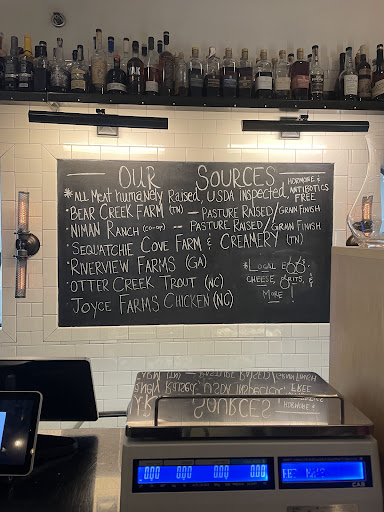 OUR SOURCES
*ALL Meat humanely Raised, USDA inspected, HORMONE & ANTIBIOTICS FREE
• BEAR CREEK FARM (TN) — PASTURE RAISED / GRAIN FINISH
• NIMAN RANCH (CO-OP) -- PASTURE RAISED / GRAIN FINISH
• SEQUATCHIE COVE FARM & CREAMERY (TN)
• RIVERVIEW FARMS (GA)
• OTTER CREEK TROUT (NC)
• JOYCE FARMS CHICKEN (NC)
*LOCAL
CHEESE, GRITS, &
MORE!
0.00 0.00 0.00 0.00
CAS